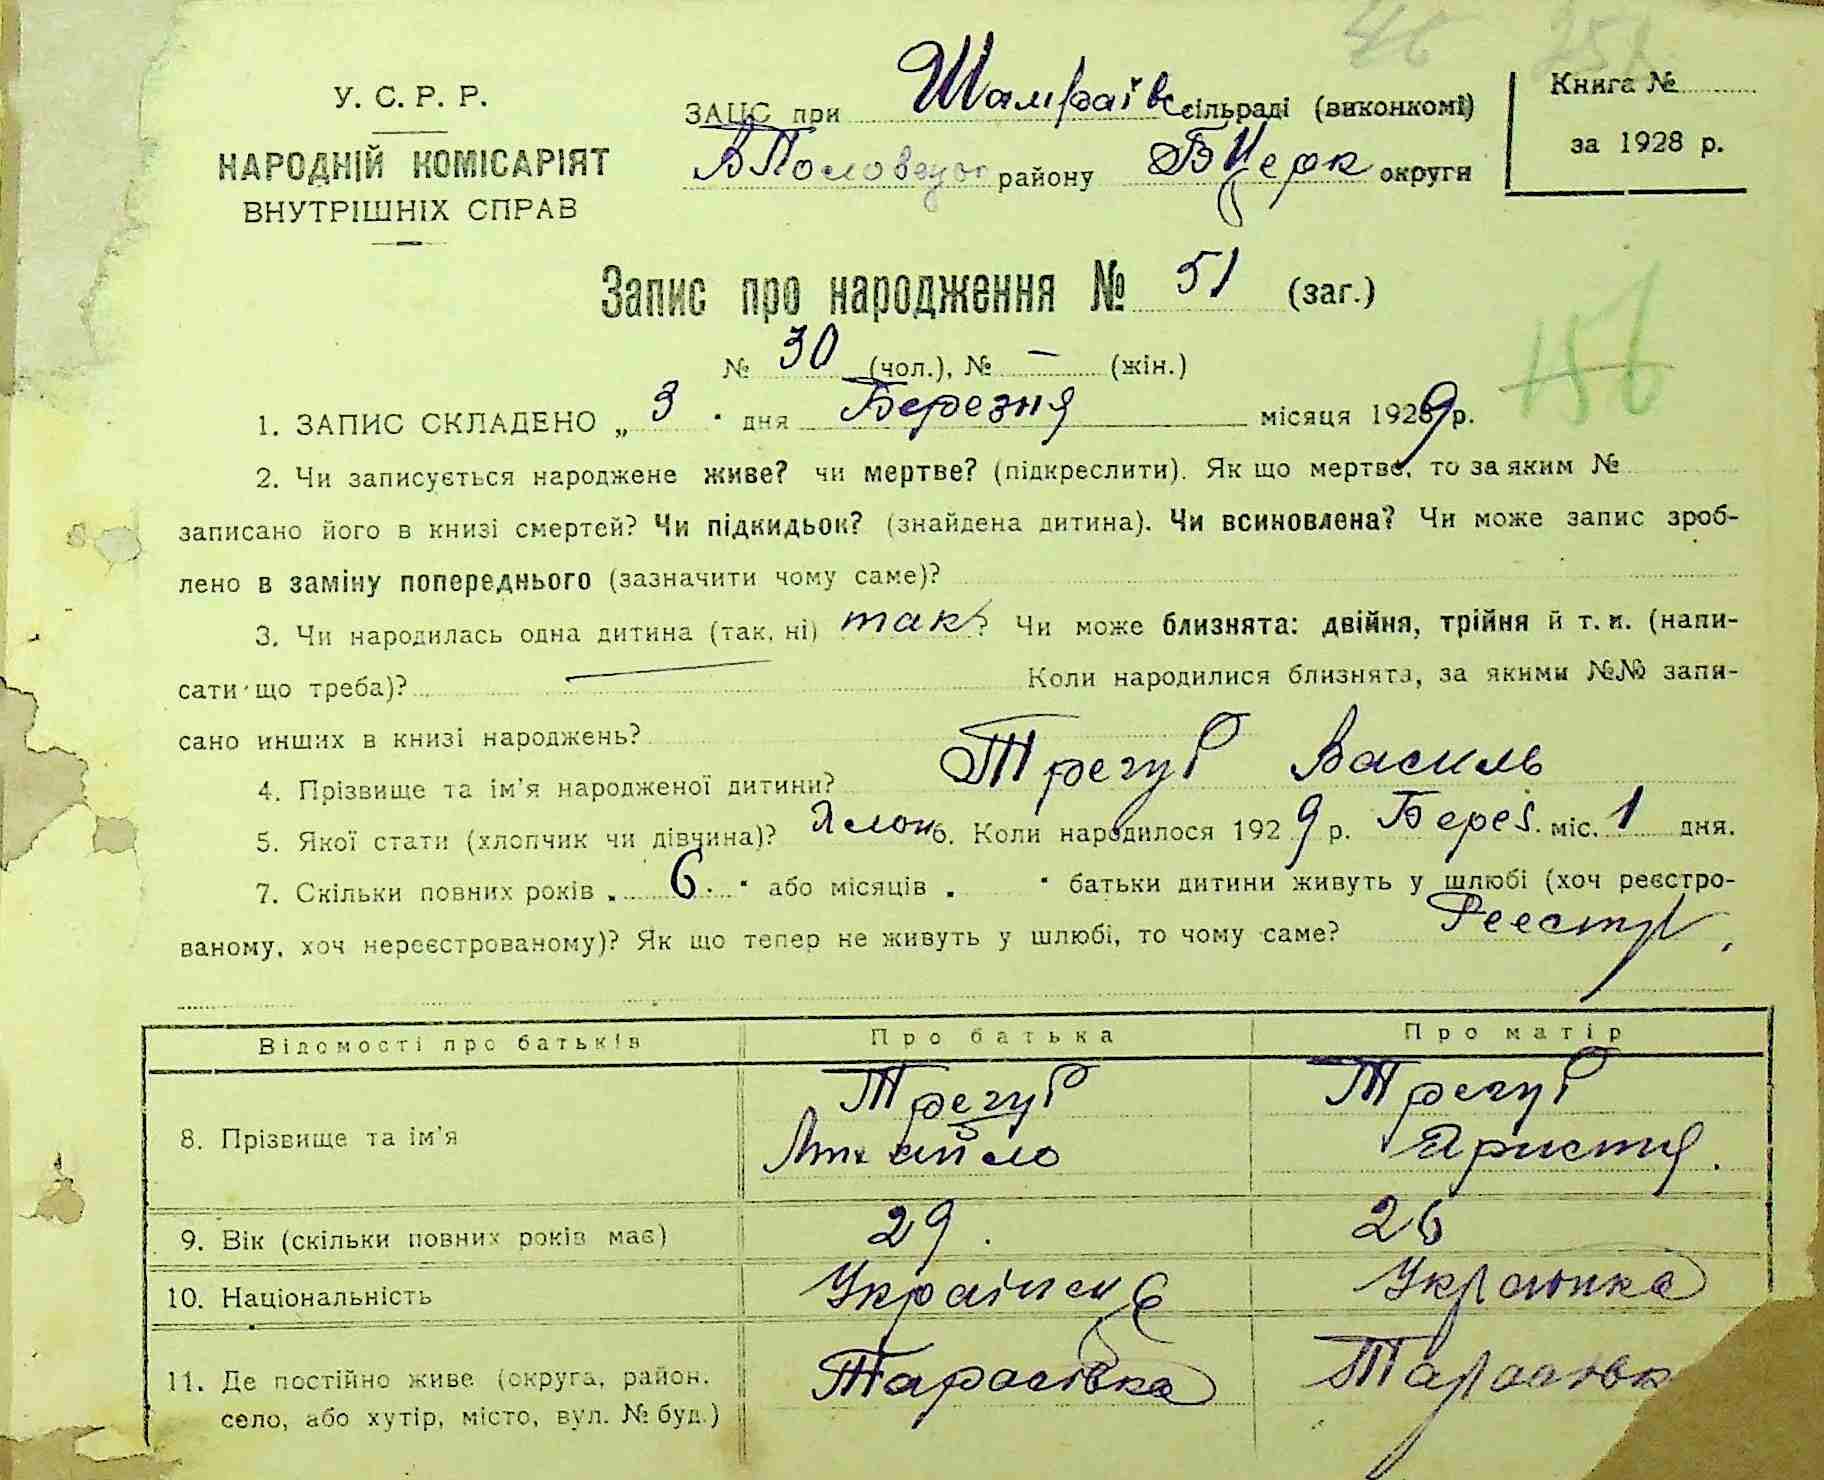 У. С. Р. Р.
НАРОДНІЙ КОМІСАРІЯТ
ВНУТРІШНІХ СПРАВ
ЗАЦС при Шамраївс сільраді (виконкомі)
ВПоловецьк району БЦерк округи
Книга №
за 1928 р.
Запис про народження № 51 (заг.)
№ 30 (чол.), № — (жін.)
156
1. ЗАПИС СКЛАДЕНО „ 3 " дня Березня місяця 1929 р.
2. Чи записується народжене живе? чи мертве? (підкреслити). Як що мертве, то за яким №
записано його в книзі смертей? Чи підкидьок? (знайдена дитина). Чи всиновлена? Чи може запис зроб-
лено в заміну попереднього (зазначити чому саме)?
3. Чи народилась одна дитина (так, ні) так? Чи може близнята: двійня, трійня й т. и. (напи-
сати що треба)? — Коли народилися близнята, за якими №№ запи-
сано инших в книзі народжень?
4. Прізвище та ім'я народженої дитини? Трегуб Василь
5. Якої стати (хлопчик чи дівчина)? Хлоп 6. Коли народилося 1929 р. Берез. міс. 1 дня.
7. Скільки повних років „ 6. " або місяців „ " батьки дитини живуть у шлюбі (хоч реєстро-
ваному, хоч нереєстрованому)? Як що тепер не живуть у шлюбі, то чому саме? Реестр
Відомості про батьків Про батька Про матір
8. Прізвище та ім'я Трегуб Михайло Трегуб Христя.
9. Вік (скільки повних років має) 29. 26
10. Національність Українець Українка
11. Де постійно живе (округа, район, село, або хутір, місто, вул. № буд.) Тарасівка Тарасівк